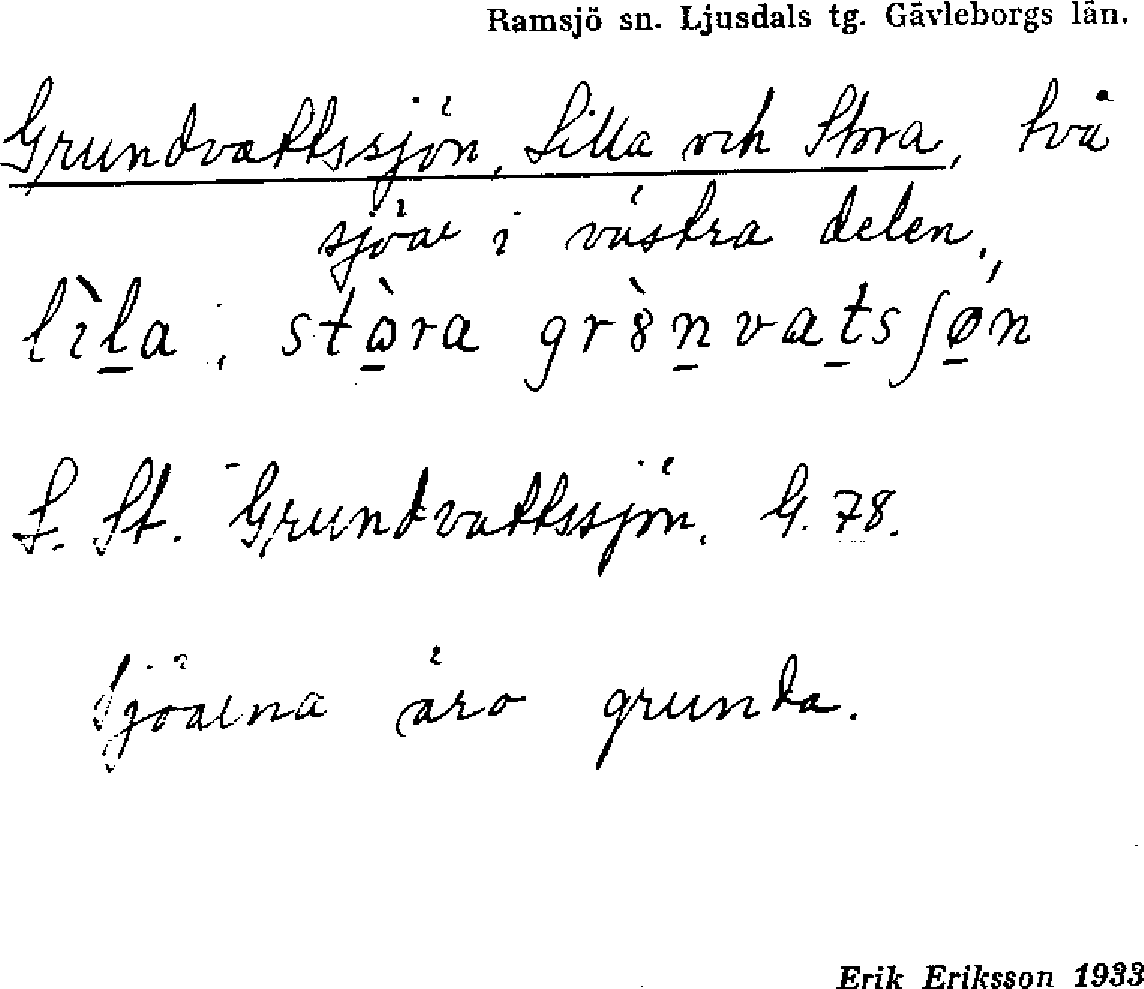 Ramsjö sn. Ljusdals tg. Gävleborgs län.
Grundvattssjön, Lilla och Stora, två
sjöar i västra delen.
lìl̲a, stɷ̲̀ra gr8̀n̲vat̲sʃǿ̲n
L. St. Grundvattssjön. G. 78.
Sjöarna äro grunda.
Erik Eriksson 1933